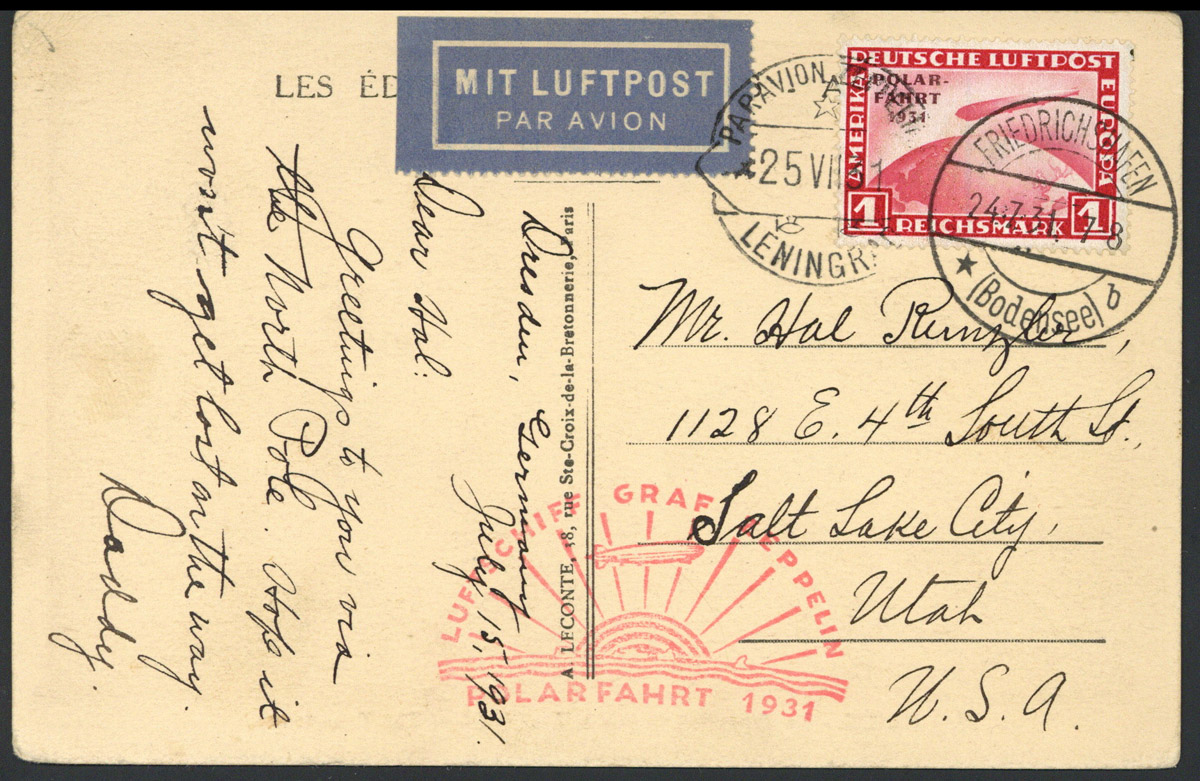 LES ÉD
MIT LUFTPOST
PAR AVION
PAR AVION
25 VII 31
LENINGRA
DEUTSCHE LUFTPOST
AMERIKA
EUROPA
POLAR-
FAHRT
1931
1 REICHSMARK 1
FRIEDRICHSHAFEN
24.7.31. 7-8
(Bodensee) b
Dresden, Germany
July, 15, 1931.
Dear Hal:
Greetings to you via
the North Pole. Hope it
won't get lost on the way.
Daddy.
A. LECONTE, 38, rue Ste-Croix-de-la-Bretonnerie, Paris
Mr. Hal
1128 E. 4th South St.,
Salt Lake City,
Utah
U. S. A.
LUFTSCHIFF GRAF ZEPPELIN
POLARFAHRT 1931